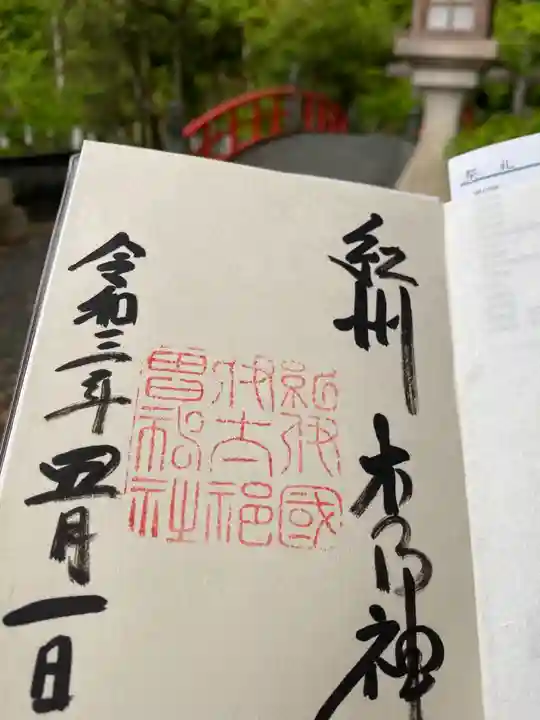 紀州 木乃神
紀伊國
伊太祁
曽神社
令和三年五月一日